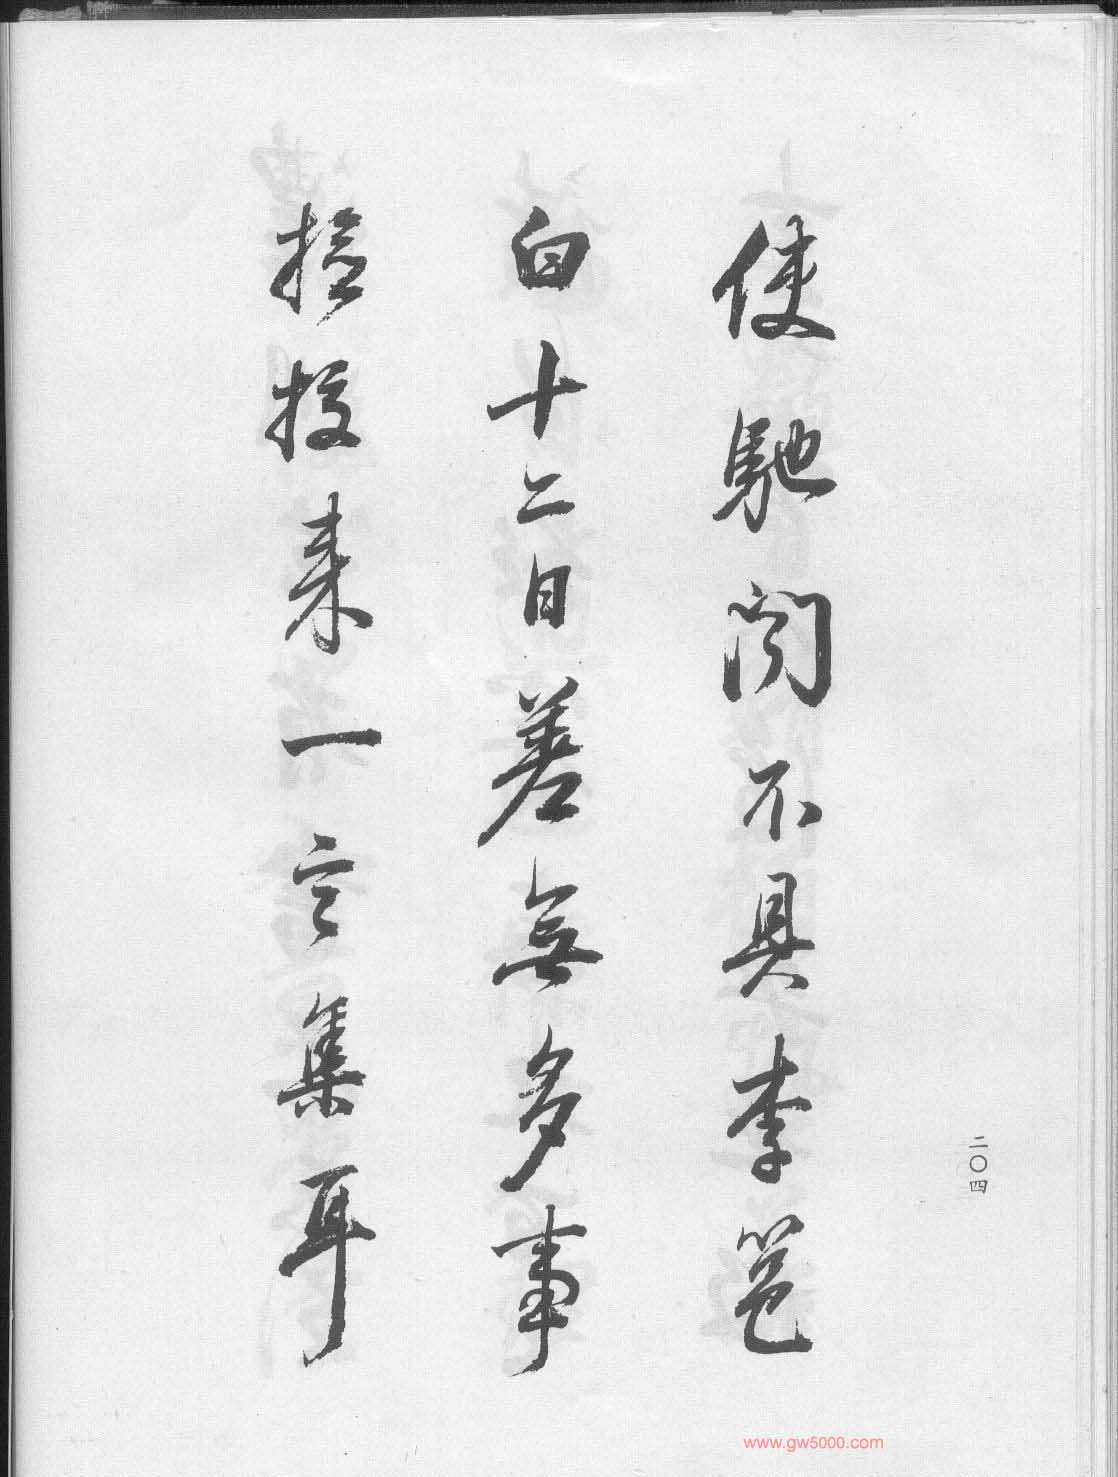 使馳問不具李邕
白十二日差無多事
撿挍来一言集耳
二〇四
www.gw5000.com